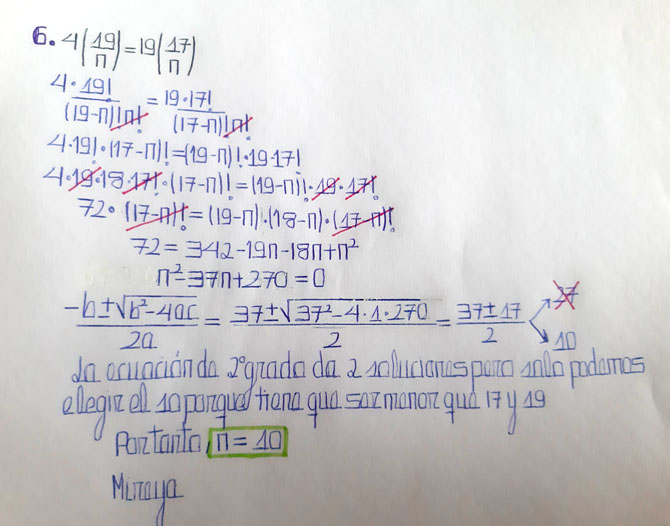 6. 4(19/n) = 19(17/n)
4·19!/(19-n)!n! = 19·17!/(17-n)!n!
4·19!·(17-n)! = (19-n)!·19·17!
4·19·18·17!·(17-n)! = (19-n)!·19·17!
72·(17-n)! = (19-n)·(18-n)·(17-n)!
72 = 342-19n-18n+n²
n²-37n+270 = 0
-b±√b²-4ac/2a = 37±√37²-4·1·270/2 = 37±17/2 27 10
La ecuación de 2º grado da 2 soluciones pero solo podemos
elegir el 10 porque tiene que ser menor que 17 y 19
Por tanto, n = 10
Mireya